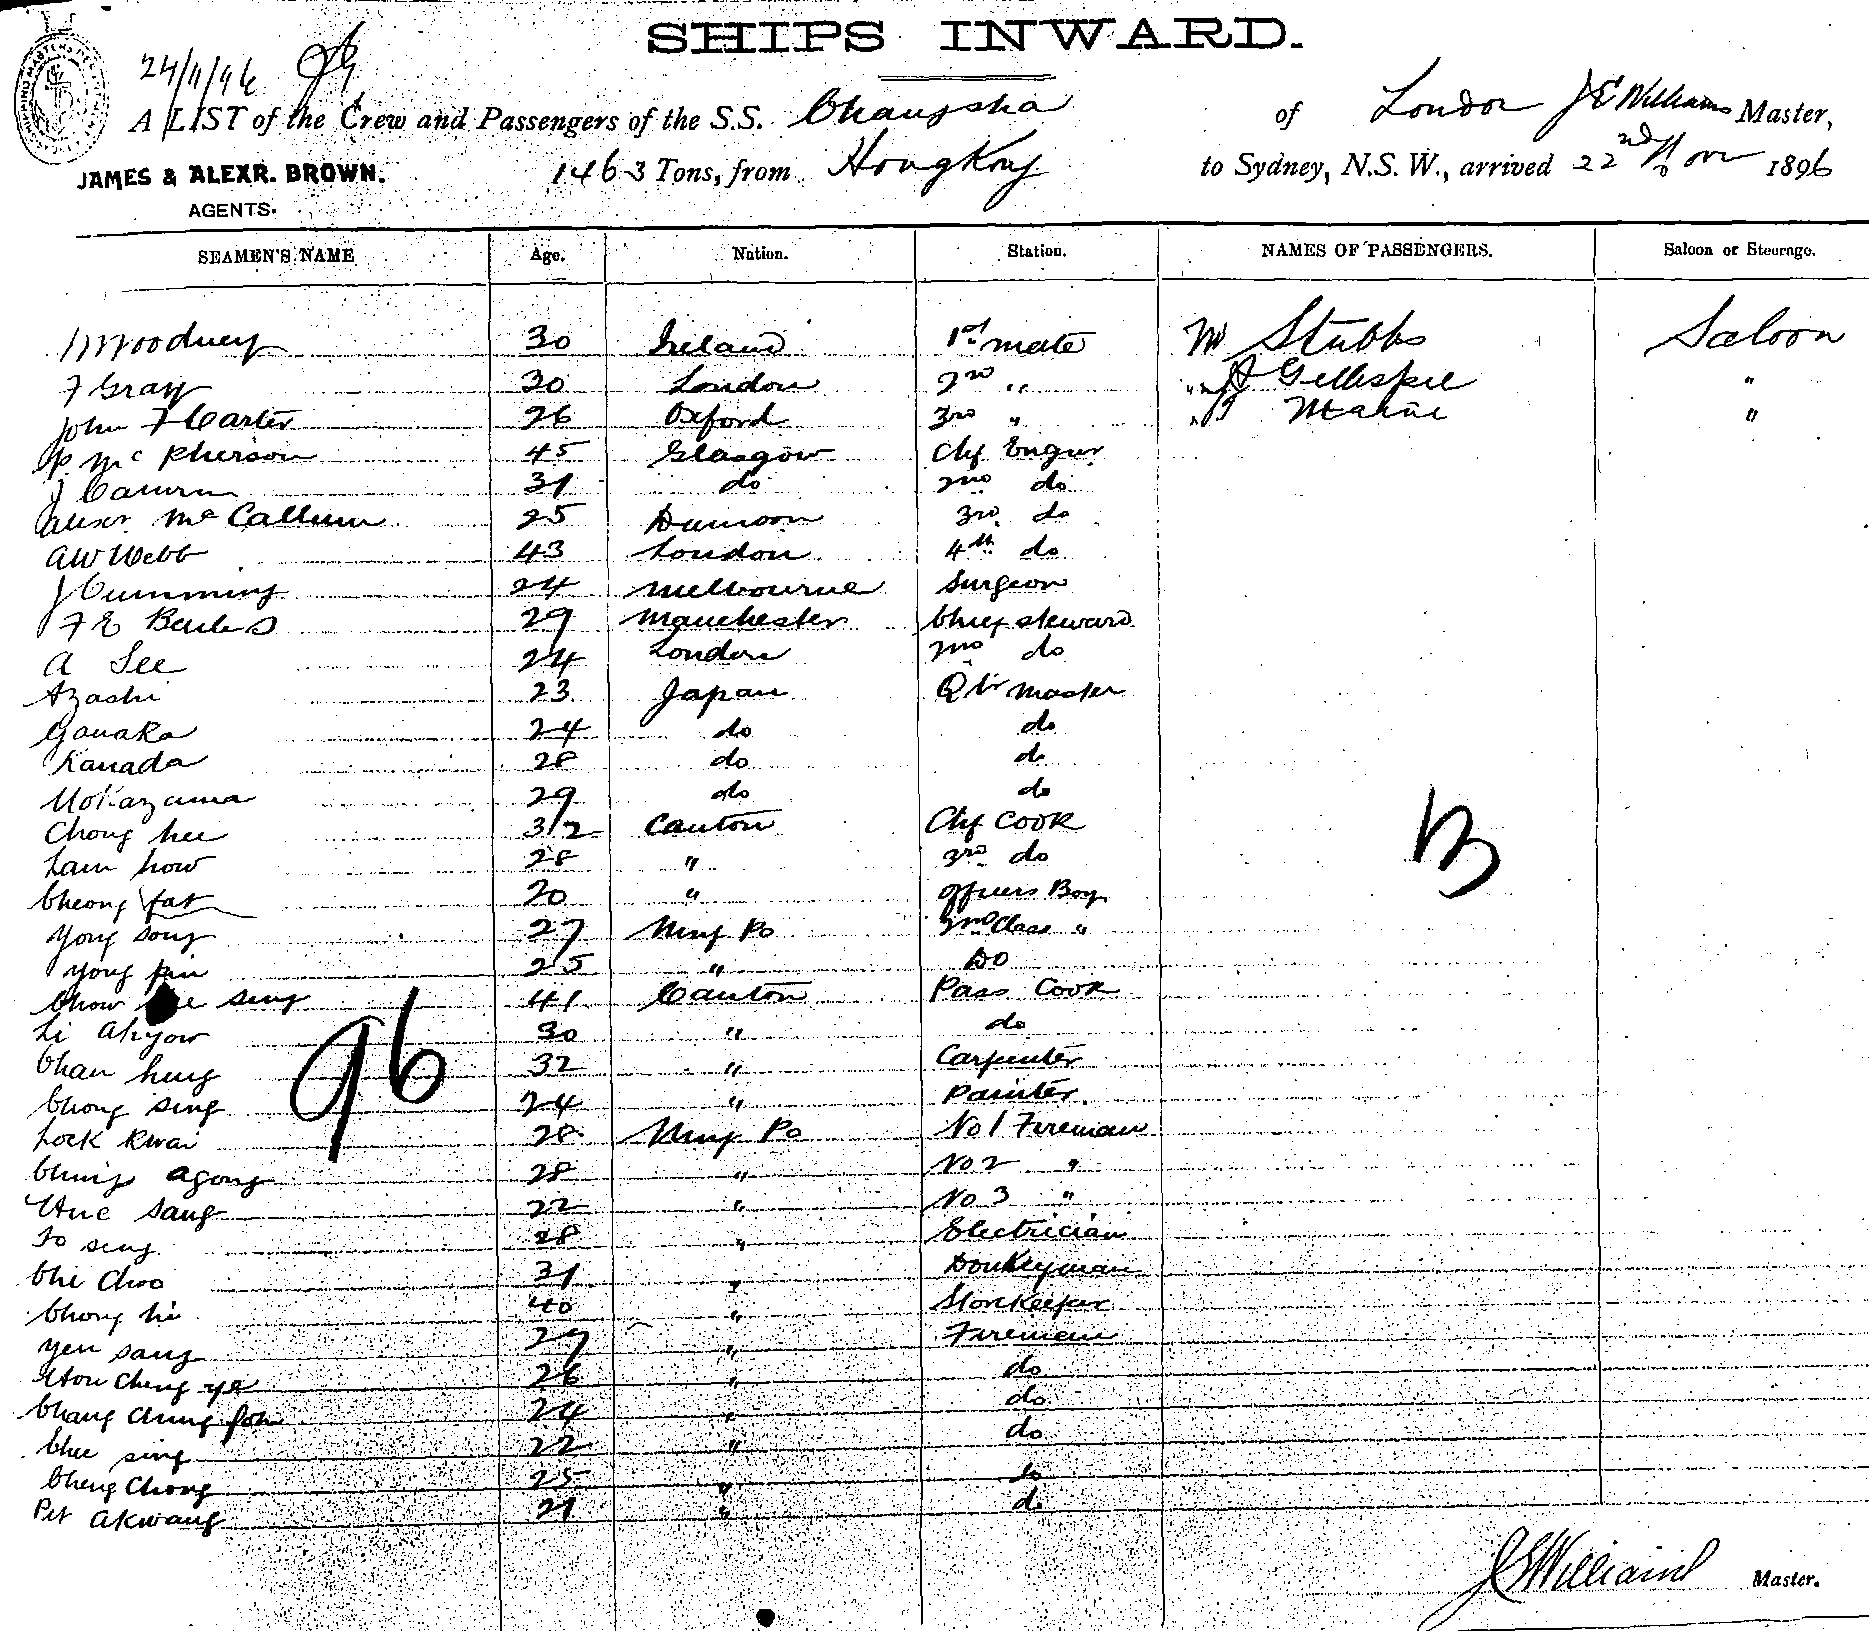 SHIPS INWARD.
24/11/96
A LIST of the Crew and Passengers of the S.S. Changsha of London J E Williams Master,
JAMES & ALEXR. BROWN. 1463 Tons, from HongKong to Sydney, N.S.W., arrived 22nd Nov 1896
AGENTS.
SEAMEN'S NAME Age. Nation. Station. NAMES OF PASSENGERS. Saloon or Steerage.
30 Ireland 1st mate Mr Stubbs Saloon
F Gray 30 London 2nd " " Gillespie "
John F Carter 26 Oxford 3rd " " "
P Mc Pherson 45 Glasgow Chf Engnr
J 31 do 2nd do
Alexr McCallum 25 Dunoon 3rd do
AW Webb 43 London 4th do
J Cumming 24 Melbourne Surgeon
F E 29 Manchester Chief steward
A See 24 London 2nd do
Azashi 23 Japan Qtr Master
24 do do
Kanada 28 do do
29 do do
Chong hee 32 Canton Chf Cook
Lam how 28 " 3rd do
Cheong fat 20 " Officers Boy
Yong song 27 Ning Po 2nd Class "
Yong 25 " Do
Chow sing 41 Canton Pass Cook
Li Ahyow 30 " do
96
Chan hung 32 " Carpenter
Chong sing 24 " Painter.
Lock Kwai 28 Ning Po No 1 Fireman
Ching Agong 28 " No 2 "
sang 22 " No 3 "
To sing 28 " Electrician
Che Choo 31 " Donkeyman
Chong 40 " Storekeeper
Yen sang 27 " Fireman
Cheng 26 " do
Chang Chung 24 " do
Chee sing 22 " do
Cheng Chong 25 " do
Akwang 21 " do
J E Williams Master.